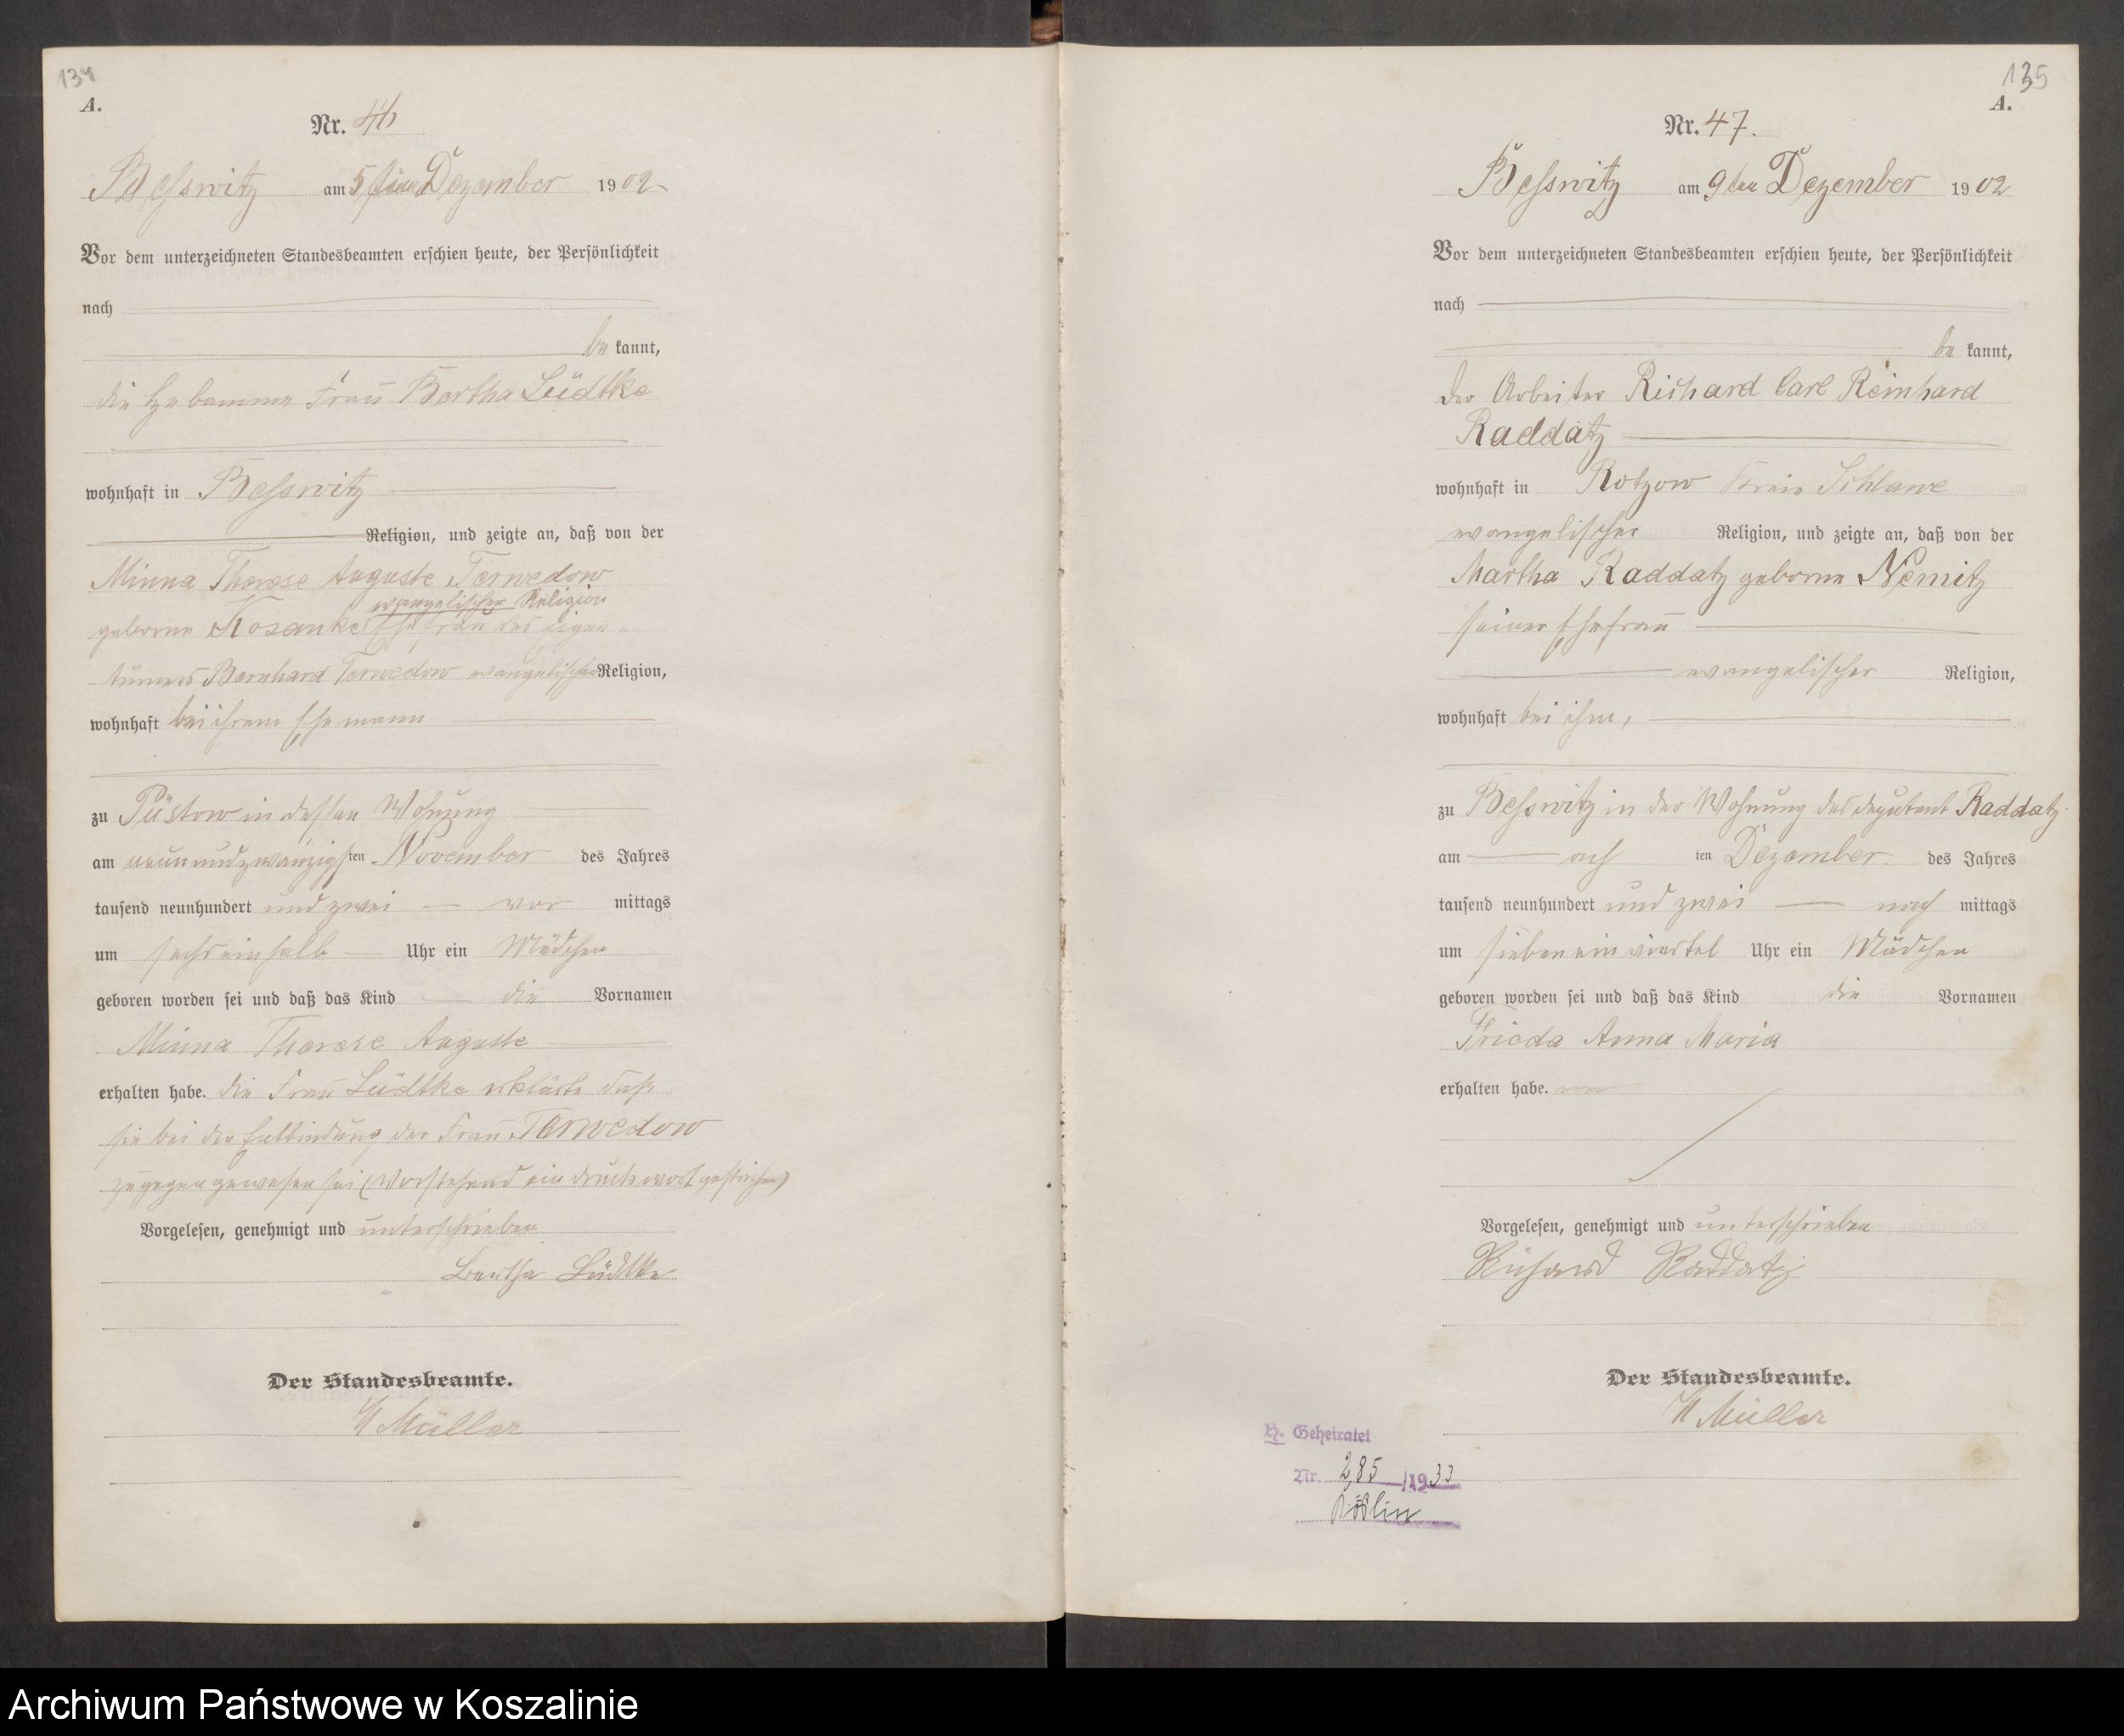 134
A.
Nr. 46
Besswitz am 5ten Dezember 1902
Vor dem unterzeichneten Standesbeamten erschien heute, der Persönlichkeit
nach
be kannt,
die Hebamme Frau Bertha Lüdtke
wohnhaft in Besswitz
Religion, und zeigte an, daß von der
Minna Therese Auguste Terwedow
evangelischer Religion
geborene Kosanke Ehefrau des Eigen-
tümers Bernhard Terwedow evangelischer Religion,
wohnhaft bei ihrem Ehemann
zu Püstow in dessen Wohnung
am neunundzwanzigsten November des Jahres
tausend neunhundert und zwei vor mittags
um sechseinhalb Uhr ein Mädchen
geboren worden sei und daß das Kind die Vornamen
Minna Therese Auguste
erhalten habe. die Frau Lüdtke erklärte daß
sie bei der Entbindung der Frau Terwedow
zugegen gewesen sei (Vorstehend ein Druckwort gestrichen)
Vorgelesen, genehmigt und unterschrieben
Bertha Lüdtke
Der Standesbeamte.
Müller
135
A.
Nr. 47.
Besswitz am 9ten Dezember 1902
Vor dem unterzeichneten Standesbeamten erschien heute, der Persönlichkeit
nach
be kannt,
der Arbeiter Richard Carl Reinhard
Raddatz
wohnhaft in Rotzow Kreis Schlawe
evangelischer Religion, und zeigte an, daß von der
Martha Raddatz geborne Nemitz
seiner Ehefrau
evangelischer Religion,
wohnhaft bei ihm,
zu Besswitz in der Wohnung des Deputant Raddatz
am ach ten Dezember des Jahres
tausend neunhundert und zwei nach mittags
um sieben ein viertel Uhr ein Mädchen
geboren worden sei und daß das Kind die Vornamen
Frieda Anna Maria
erhalten habe.
Vorgelesen, genehmigt und unterschrieben
Richard Raddatz
Der Standesbeamte.
Müller
H. Geheiratet
Nr. 285 /1933
Köslin
Archiwum Państwowe w Koszalinie